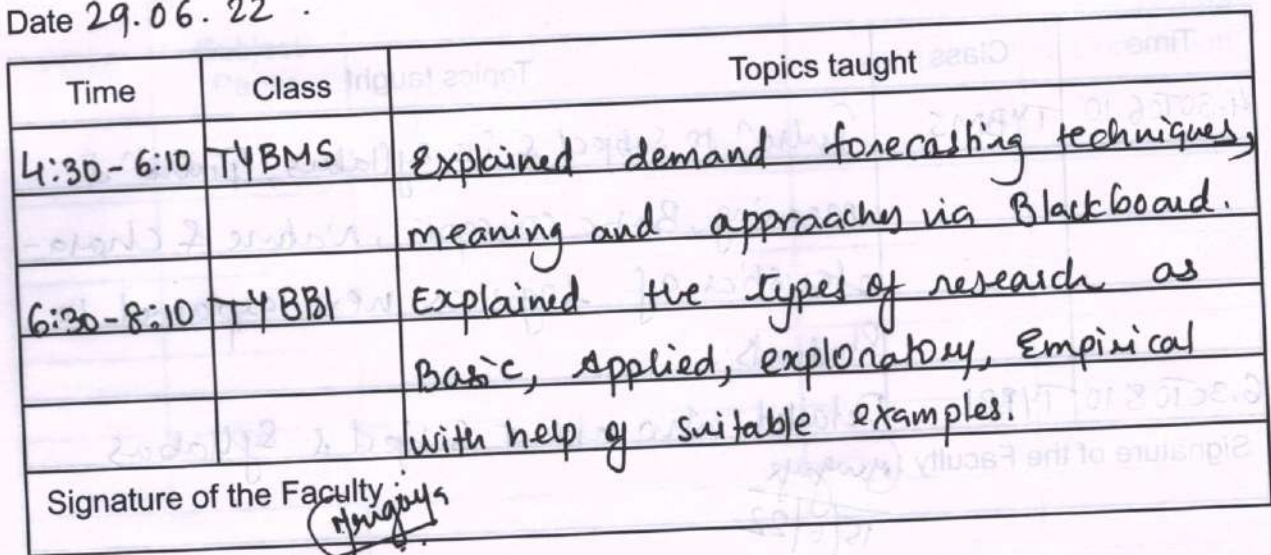 Date 29.06.22.
Time Class Topics taught
4:30-6:10 TYBMS Explained demand forecasting techniques,
meaning and approachs via Blackboard.
6:30-8:10 TYBBI Explained the types of research as
Basic, Applied, exploratory, Empirical
with help of suitable examples.
Signature of the Faculty